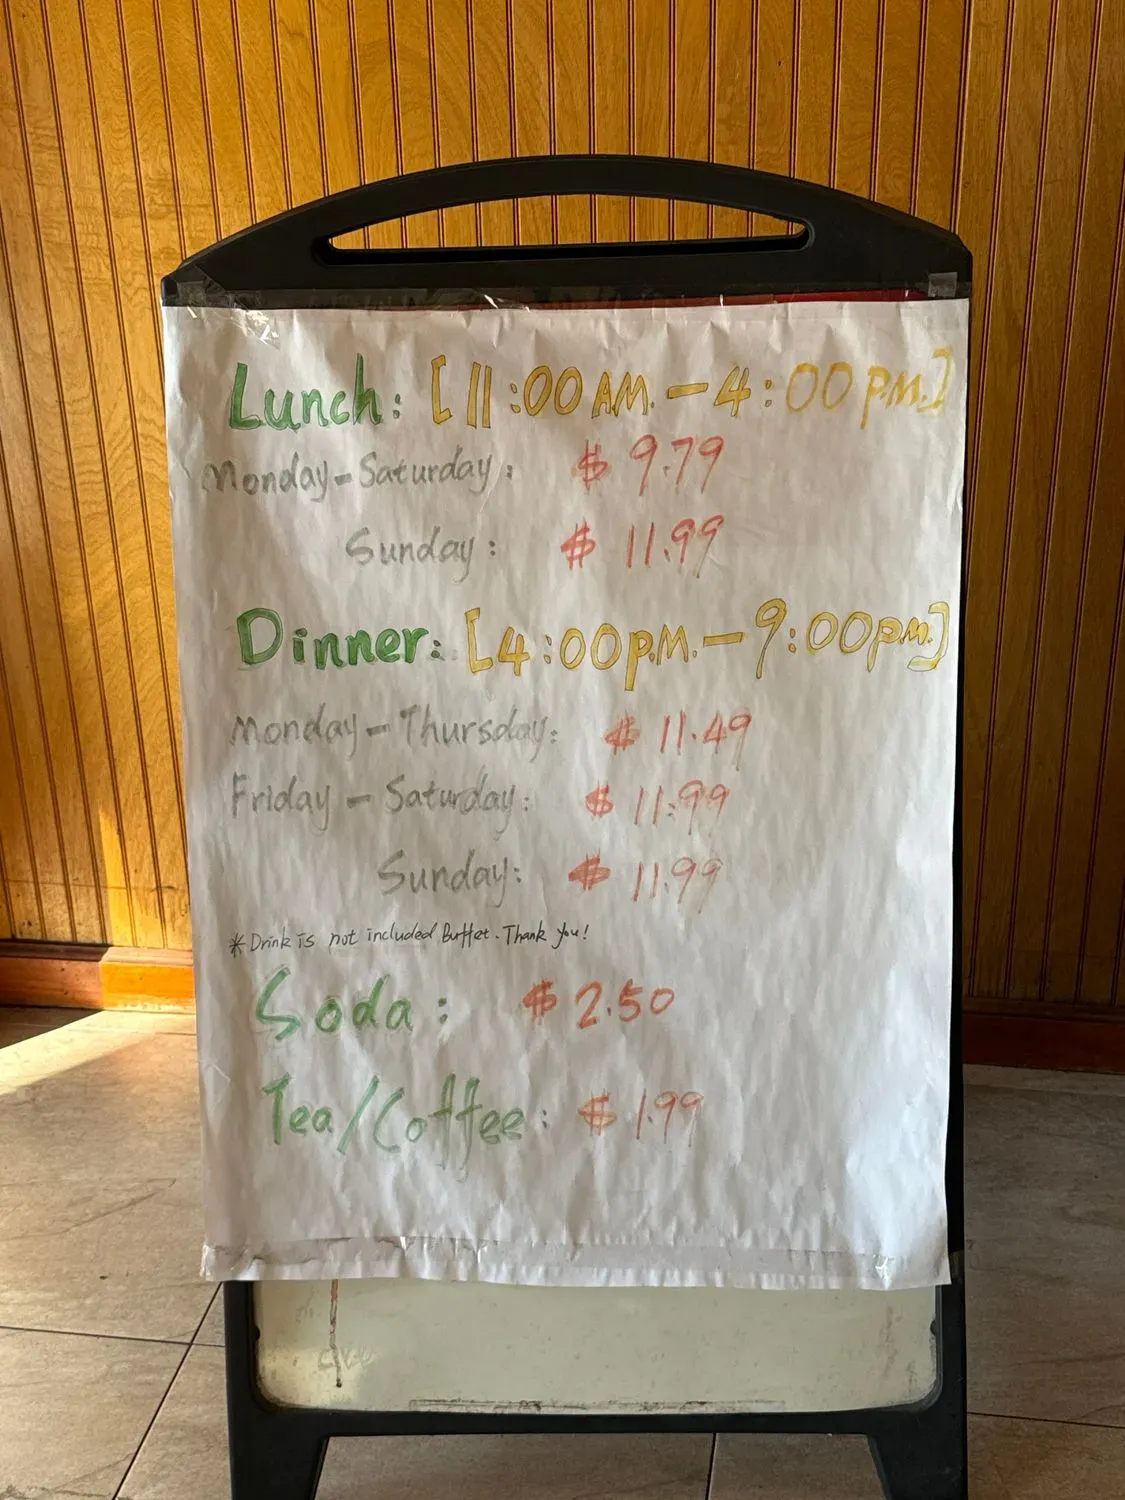 Lunch: [11:00 AM. - 4:00 P.M.]
Monday - Saturday: $ 9.79
Sunday: $ 11.99
Dinner: [4:00 P.M. - 9:00 P.M.]
Monday - Thursday: $ 11.49
Friday - Saturday: $ 11.99
Sunday: $ 11.99
* Drink is not included Buffet. Thank you!
Soda: $ 2.50
Tea/Coffee: $ 1.99